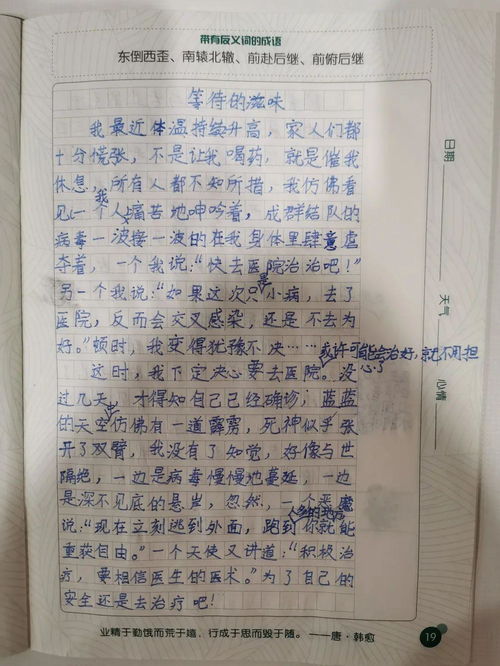 带有反义词的成语
东倒西歪、南辕北辙、前赴后继、前俯后继
等待的滋味
我最近体温持续升高，家人们都
十分慌张，不是让我喝药，就是催我
休息，所有人都不知所措，我仿佛看
我
见一个人痛苦地呻吟着，成群结队的
病毒一波接一波的在我身体里肆意虐
夺着，一个我说：“快去医院治治吧！”
是
另一个我说：“如果这次只小病，去了
医院，反而会交叉感染，还是不去为
好。”顿时，我变得犹豫不决……或许可能会治好，就不用担
心了
这时，我下定决心要去医院。没
过几天，才得知自己已经确诊，蓝蓝
中
的天空仿佛有一道霹雳，死神似乎张
开了双臂，我没有了知觉，好像与世
隔绝，一边是病毒慢慢地蔓延，一边
是深不见底的悬崖，忽然，一个恶魔
人多的地方
说：“现在立刻逃到外面，跑到你就能
重获自由。”一个天使又讲道：“积极治
疗，要相信医生的医术。”为了自己的
安全还是去治疗吧！
日期
天气
心情
业精于勤饿而荒于嬉，行成于思而毁于随。——唐·韩愈
19